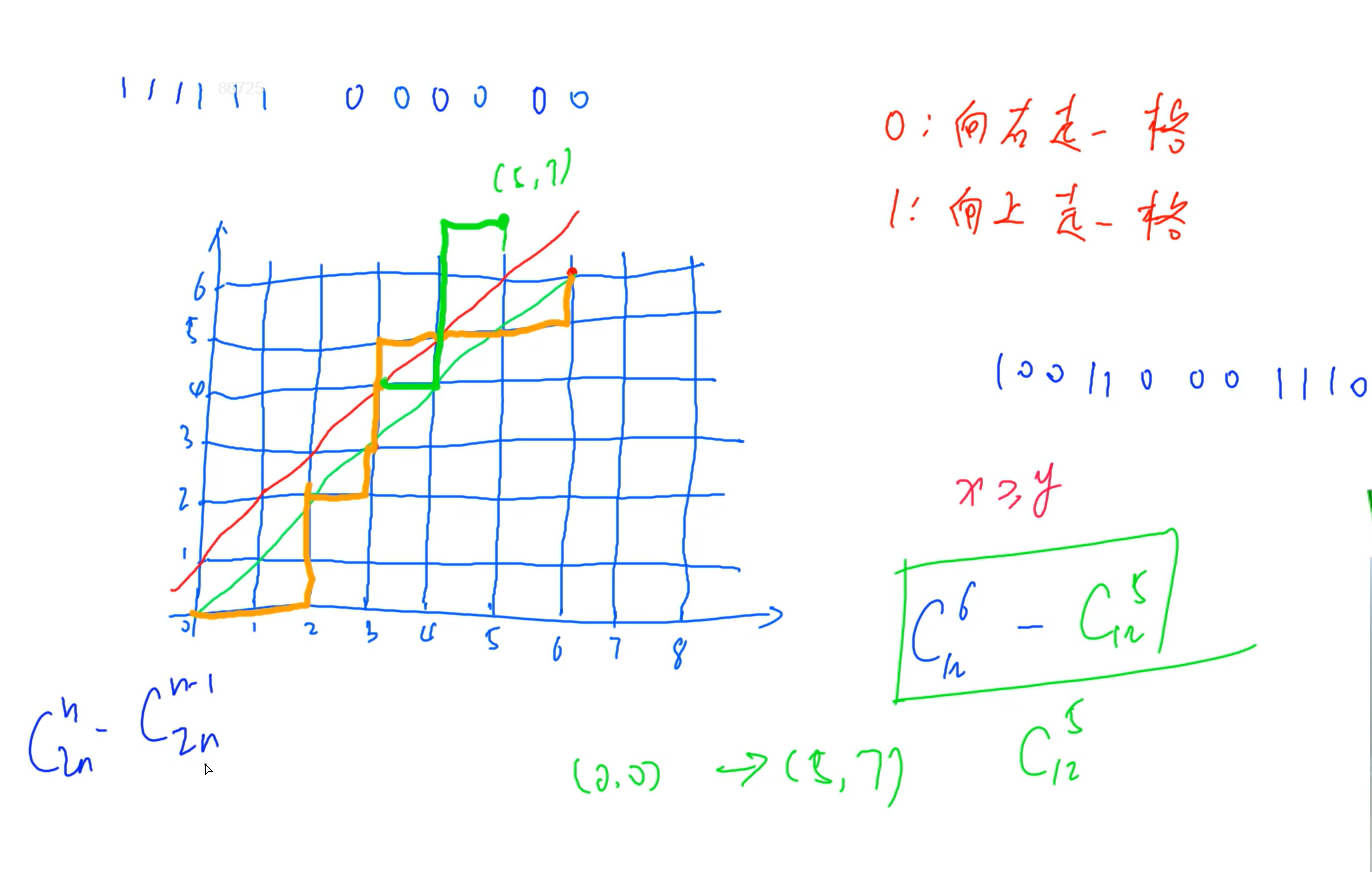 1 1 1 1 1 1 0 0 0 0 0 0
86725
0：向右走一格
1：向上走一格
(5,7)
6
5
4
3
2
1
0 1 2 3 4 5 6 7 8
1 0 0 1 1 0 0 0 1 1 1 0
x ≥ y
C_{12}^{6} - C_{12}^{5}
C_{2n}^{n} - C_{2n}^{n-1}
(0,0) → (5,7)
C_{12}^{5}